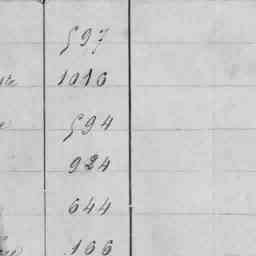 597
1016
594
924
644
166